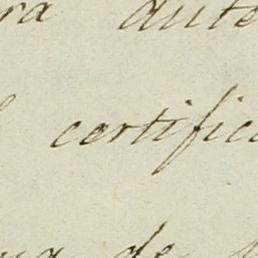 ra aute
certific
ua de